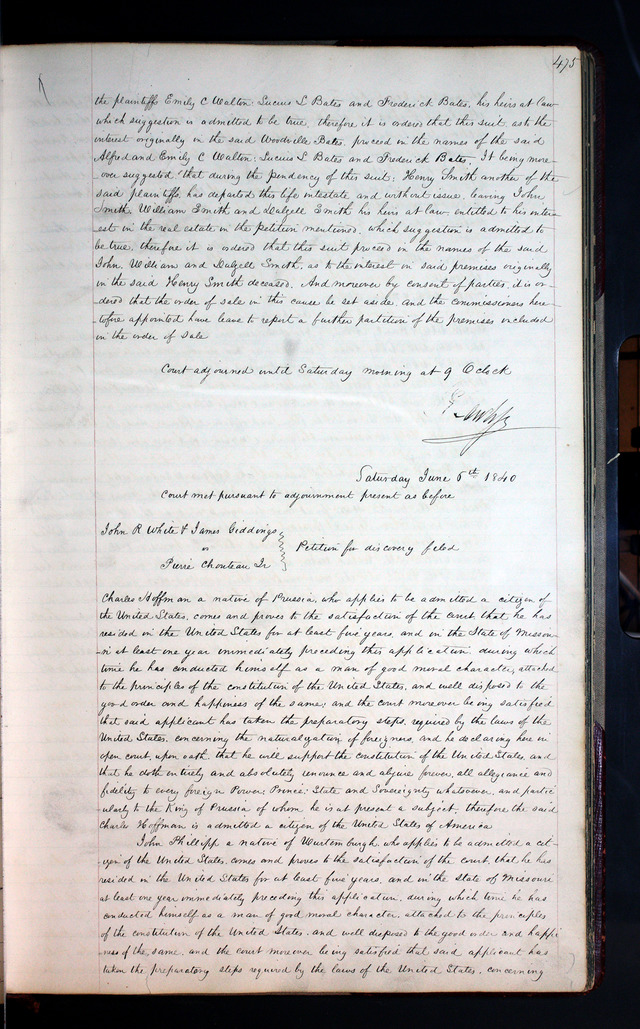 475
the plaintiffs Emily C Walton: Lucius L Bates and Frederick Bates, his heirs at law
which suggestion is admitted to be true, therefore it is ordered that this suit, as to the
interest originally in the said Woodville Bates, proceed in the names of the said
Alfred and Emily C Walton: Lucius L Bates and Frederick Bates, It being more-
over suggested that during the pendency of this suit; Henry Smith another of the
said plaintiffs, has departed this life intestate and without issue, leaving John
Smith, William Smith and Dalzell Smith his heirs at law entitled to his inter-
est in the real estate in the petition mentioned, which suggestion is admitted to
be true, therefore it is ordered that this suit proceed in the names of the said
John, William and Dalzell Smith, as to the interest in said premises originally
in the said Henry Smith deceased. And moreover by consent of parties, it is or-
dered that the order of sale in this cause be set aside, and the commissioners here
tofore appointed have leave to report a further partition of the premises included
in the order of sale
Court adjourned until Saturday morning at 9 O'clock
Saturday June 6th 1840
Court met pursuant to adjournment present as before
John R White & James Giddings
vs
Pierre Chouteau Jr
Petition for discovery filed
Charles Hoffman a native of Prussia, who applies to be admitted a citizen of
the United States, comes and proves to the satisfaction of the court that he has
resided in the United States for at least five years, and in the State of Missou-
ri at least one year immediately preceding this application during which
time he has conducted himself as a man of good moral character, attached
to the principles of the constitution of the United States, and well disposed to the
good order and happiness of the same; and the court moreover being satisfied
that said applicant has taken the preparatory steps, required by the laws of the
United States, concerning the naturalization of foreigners, and he declaring here in
open court, upon oath, that he will support the constitution of the United States, and
that he doth entirely and absolutely renounce and abjure forever, all allegiance and
fidelity to every foreign Power; Prince; State and Sovereignty whatsoever, and partic
ularly to the King of Prussia of whom he is at present a subject, therefore the said
Charles Hoffman is admitted a citizen of the United States of America
John Phillipp a native of Wurtemburgh, who applies to be admitted a cit-
izen of the United States, comes and proves to the satisfaction of the court, that he has
resided in the United States for at least five years, and in the state of Missouri
at least one year immediately preceding this application, during which time he has
conducted himself as a man of good moral character, attached to the principles
of the constitution of the United States, and well disposed to the good order and happi
ness of the same, and the court moreover being satisfied that said applicant has
taken the preparatory steps required by the laws of the United States, concerning